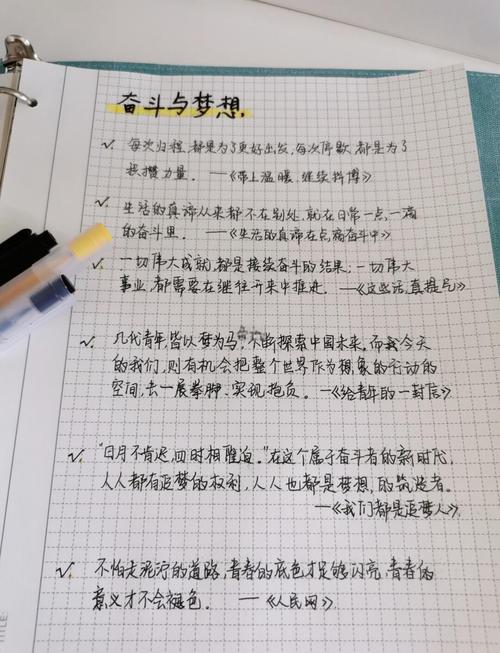 奋斗与梦想.
✓ 每次归程,都是为了更好出发,每次停歇,都是为了
积攒力量. ——《带上温暖,继续拼搏》
✓ 生活的真谛从来都不在别处,就在日常一点一滴
的奋斗里. ——《生活的真谛在点滴奋斗中》
✓ 一切伟大成就,都是接续奋斗的结果;一切伟大
事业,都需要在继往开来中推进. ——《这些话,直提气》
✓ 几代青年,皆以梦为马,不断探索中国未来.而我今天
的我们,则有机会把整个世界作为想象的行动的
空间,去一展拳脚、实现抱负. ——《给青年的一封信》
✓ "日月不肯迟,四时相催迫."在这个属于奋斗者的新时代,
人人都有追梦的权利,人人也都是梦想,的筑造者.
——《我们都是追梦人》
✓ 不怕走泥泞的道路,青春的底色才足够闪亮,青春的
意义才不会褪色. ——《人民网》
TITLE